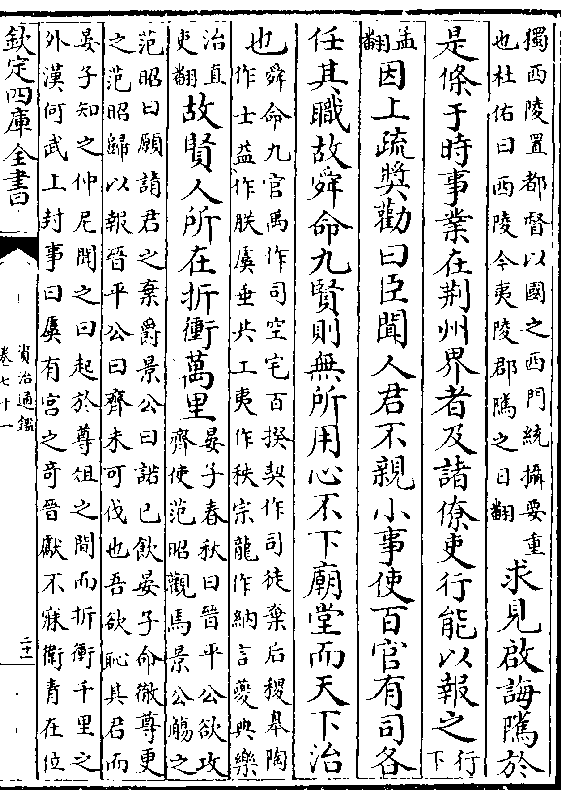 獨西陵置都督以國之西門統攝要重
也杜佑曰西陵今夷陵郡隲之日翻
求見啟誨隲於
是條于時事業在荆州界者及諸僚吏行能以報之
行
下
孟
翻
因上疏奬勸曰臣聞人君不親小事使百官有司各
任其職故舜命九賢則無所用心不下廟堂而天下治
也
舜命九官禹作司空宅百揆契作司徒棄后稷臯陶
作士益作朕虞垂共工夷作秩宗龍作納言夔典樂
治直
吏翻
故賢人所在折衝萬里
晏子春秋曰晉平公欲攻
齊使范昭觀焉景公觴之
范昭曰願請君之棄爵景公曰諾已飲晏子命徹尊更
之范昭歸以報晉平公曰齊未可伐也吾欲恥其君而
晏子知之仲尼聞之曰起於尊俎之間而折衝千里之
外漢何武上封事曰虞有宮之奇晉獻不寐衛青在位
欽定四庫全書
資治通鑑
卷七十一
二十一